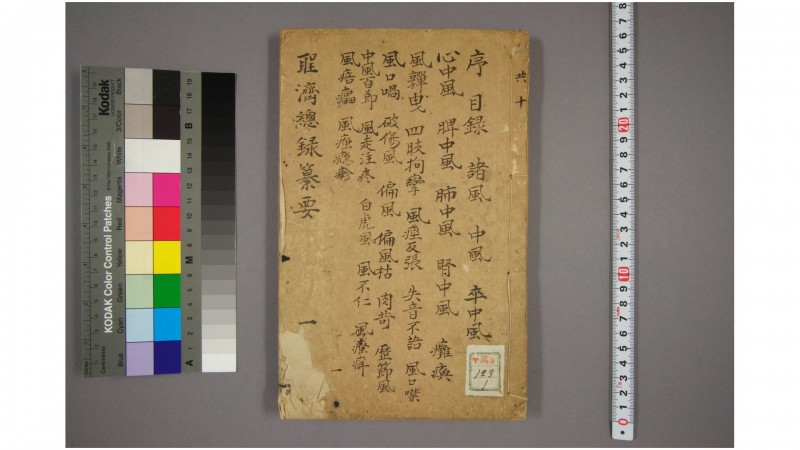 共十
序 目録 諸風 中風 卒中風
心中風 脾中風 肺中風 腎中風 癱瘓
風嚲曳 四肢拘攣 風痙反張 失音不語 風口噤
風口喎 破傷風 偏風 偏風枯 肉苛 歴節風
中風百節 風走注疼 白虎風 風不仁
風痞㿔 風瘙癮疹
一
聖濟總録纂要 一
123
1
Kodak
KODAK Color Control Patches
Black
3/Color
White
Magenta
Red
Yellow
Green
Cyan
Blue
B
M
A
0 1 2 3 4 5 6 7 8 9 10 1 2 3 4 5 6 7 8 9 20 1 2 3 4 5 6 7 8